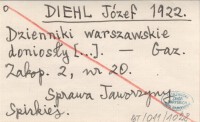 DIEHL Józef 1922.
Dzienniki warszawskie
doniosły [...]. — Gaz.
Zakop. 2, nr 20.
Sprawa Jaworzyny
Spiskiej.